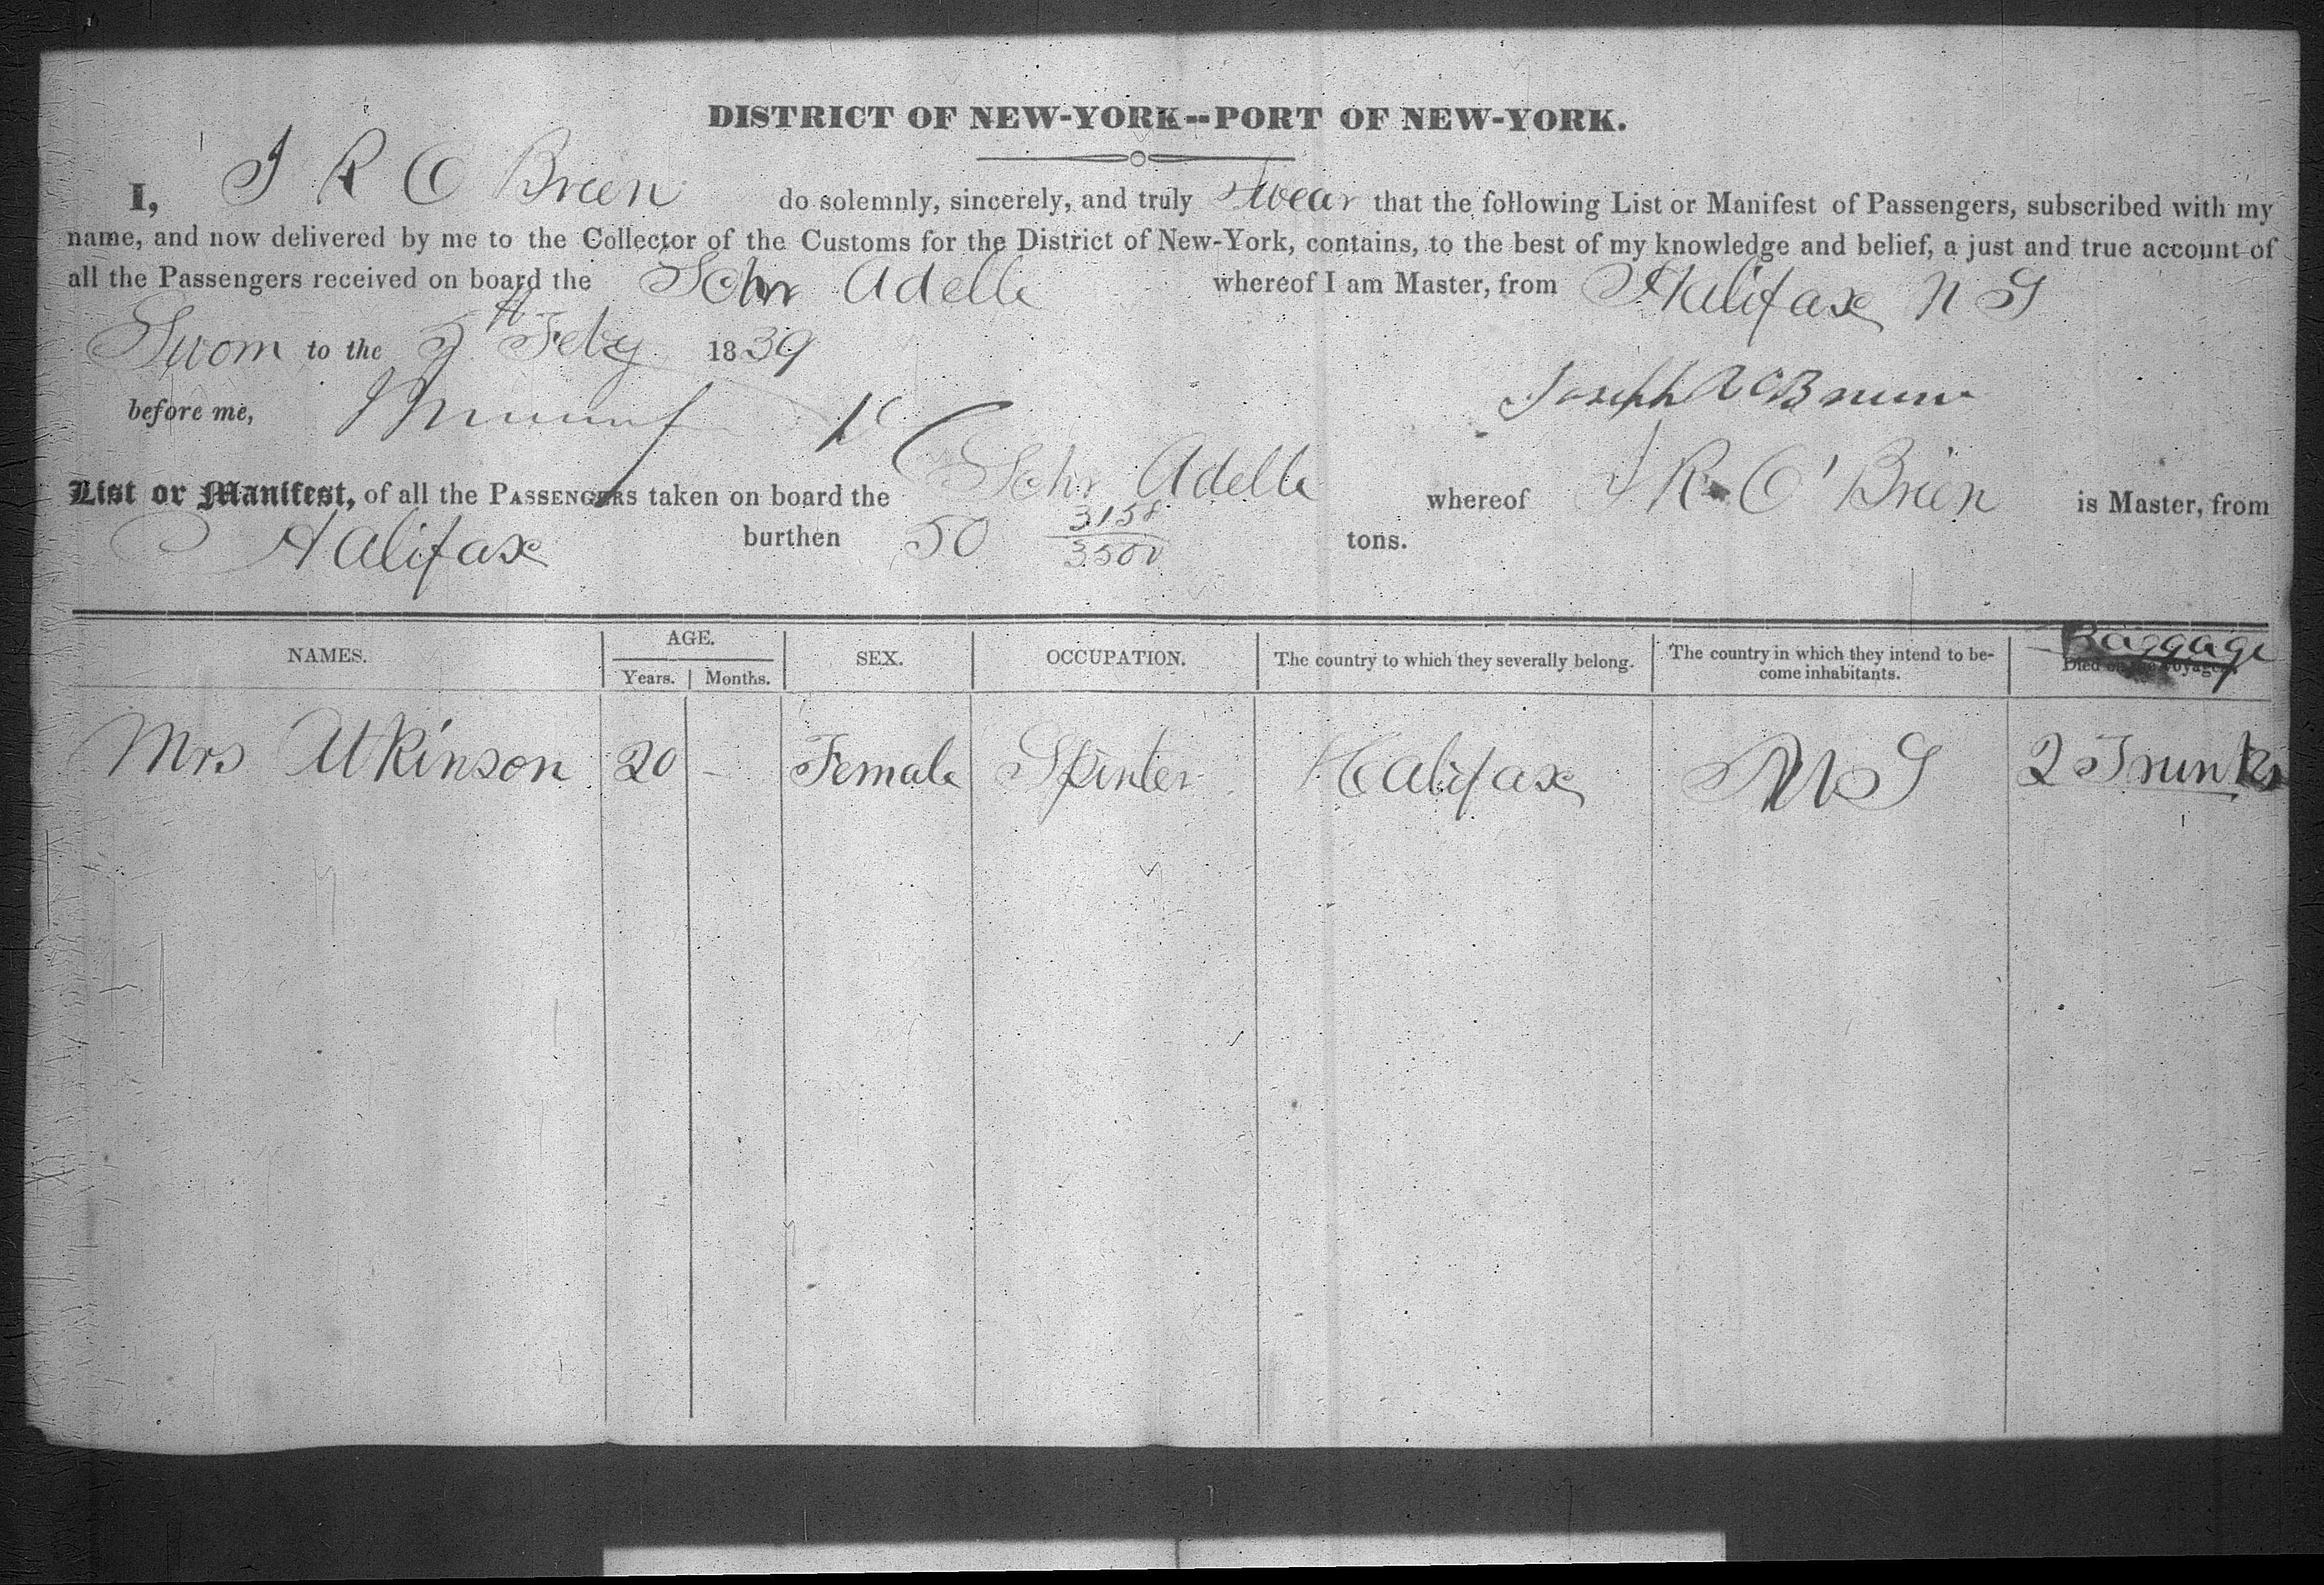 DISTRICT OF NEW-YORK--PORT OF NEW-YORK.
I, J R O Brien do solemnly, sincerely, and truly Swear that the following List or Manifest of Passengers, subscribed with my
name, and now delivered by me to the Collector of the Customs for the District of New-York, contains, to the best of my knowledge and belief, a just and true account of
all the Passengers received on board the Schr Adelle whereof I am Master, from Halifax N S
Sworn to the 5th Feby 1839
before me, Joseph R OBrien
List or Manifest, of all the PASSENGERS taken on board the Schr Adelle whereof J R O'Brien is Master, from
Halifax burthen 50 3158/3500 tons.
NAMES. AGE. SEX. OCCUPATION. The country to which they severally belong. The country in which they intend to be- Baggage
Years. Months. come inhabitants. Died on the voyage.
Mrs Atkinson 20 - Female Spinter Halifax N S 2 Trunks